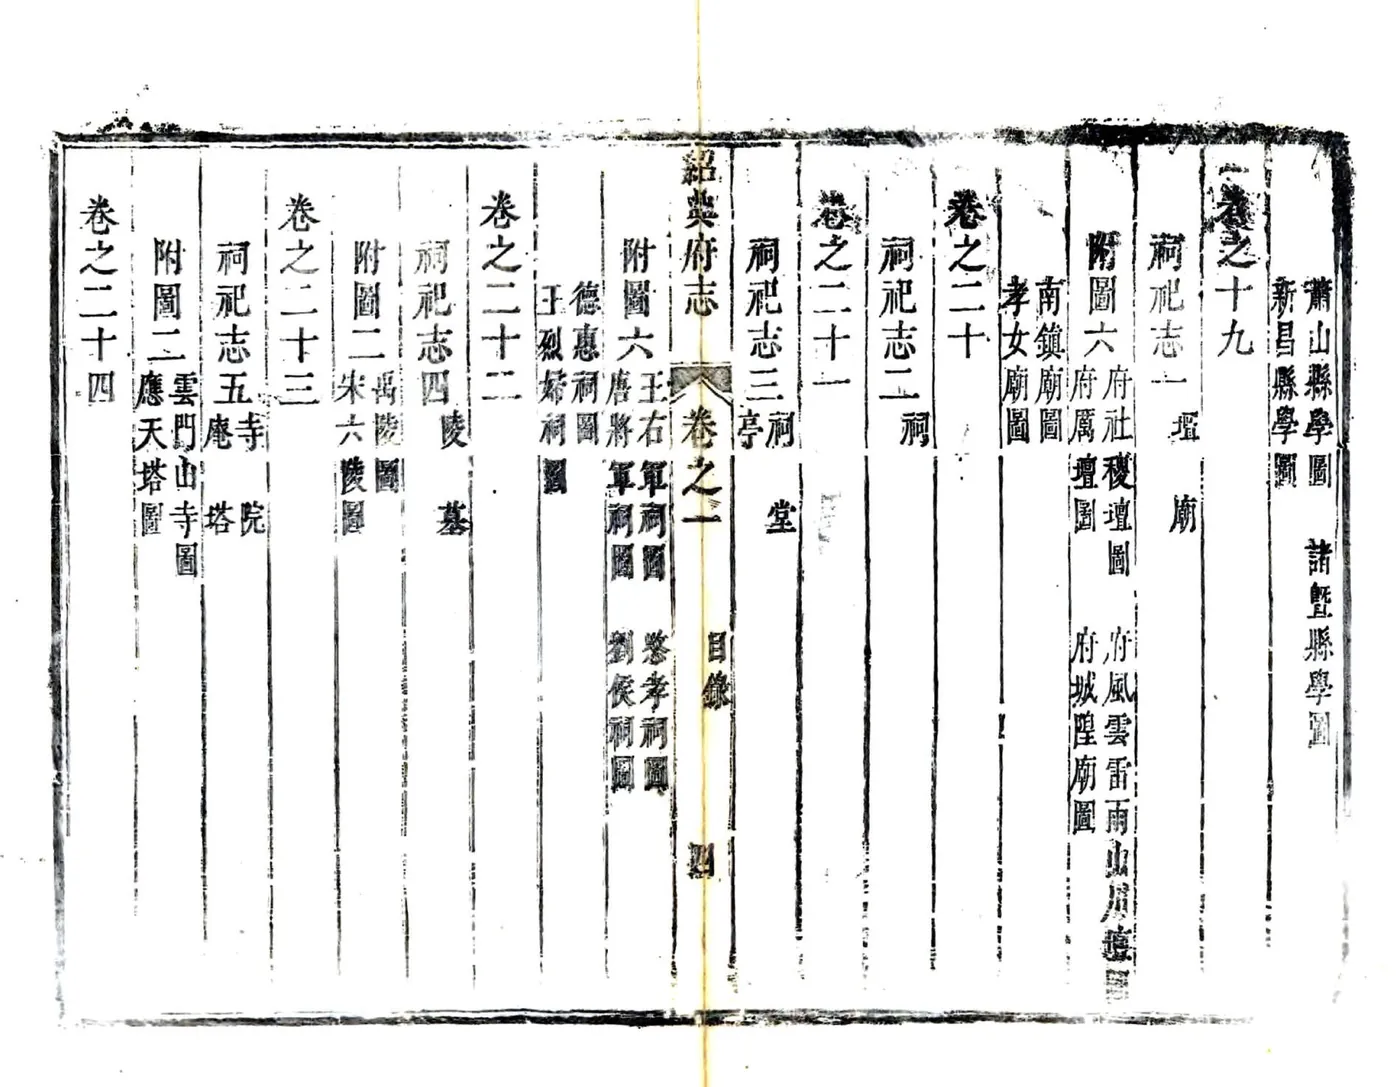 蕭山縣學圖　諸曁縣學圖
新昌縣學圖
卷之十九
祠祀志一　壇　廟
附圖六
府社稷壇圖　府風雲雷雨山川壇圖
府厲壇圖　府城隍廟圖
南鎮廟圖
孝女廟圖
卷之二十
祠祀志二　祠
卷之二十一
祠祀志三　祠　堂
亭
紹興府志　卷之一　目錄　四
附圖六
王右軍祠圖　愍孝祠圖
唐將軍祠圖　劉侯祠圖
德惠祠圖
王烈婦祠圖
卷之二十二
祠祀志四　陵　墓
附圖二
禹陵圖
朱六陵圖
卷之二十三
祠祀志五
寺　院
庵　塔
附圖二
雲門山寺圖
應天塔圖
卷之二十四